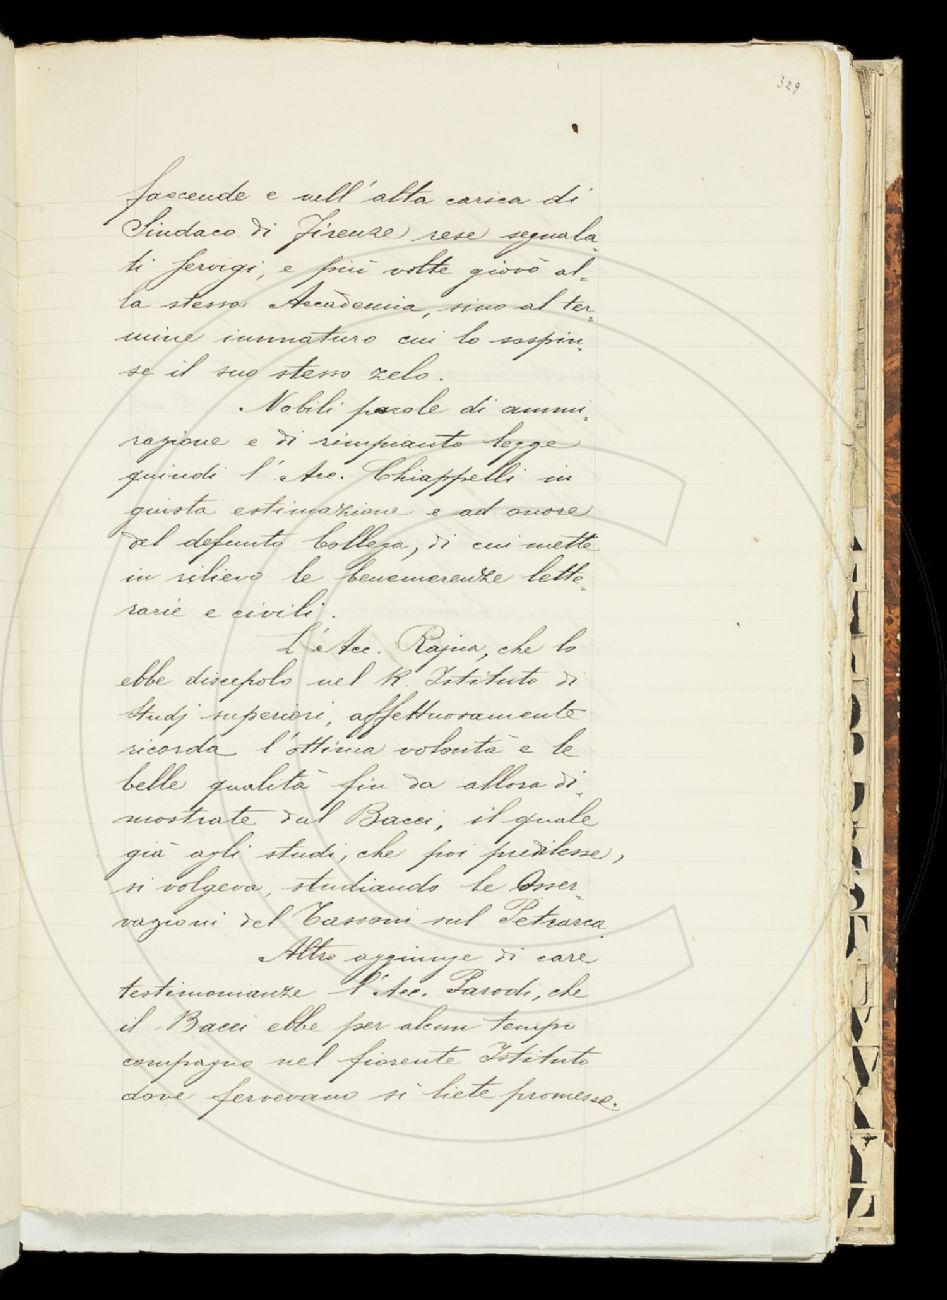 329
faccende e nell'alta carica di
Sindaco di Firenze rese segnala-
ti servigi, e più volte giovò al-
la stessa Accademia, sino al ter-
mine immaturo cui lo sospin-
se il suo stesso zelo.
Nobili parole di ammi-
razione e di rimpianto legge
quindi l'Acc. Chiappelli in
giusta estimazione e ad onore
del defunto Collega, di cui mette
in rilievo le benemerenze lette-
rarie e civili.
L'Acc. Rajna, che lo
ebbe discepolo nel R. Istituto di
Studj superiori, affettuosamente
ricorda l'ottima volontà e le
belle qualità fin da allora di-
mostrate dal Bacci, il quale
già agli studi, che poi predilesse,
si volgeva, studiando le Osser-
vazioni del Tassoni sul Petrarca.
Altro aggiunge di care
testimonianze l'Acc. Parodi, che
il Bacci ebbe per alcun tempo
compagno nel fiorente Istituto
dove fervevano sì liete promesse.